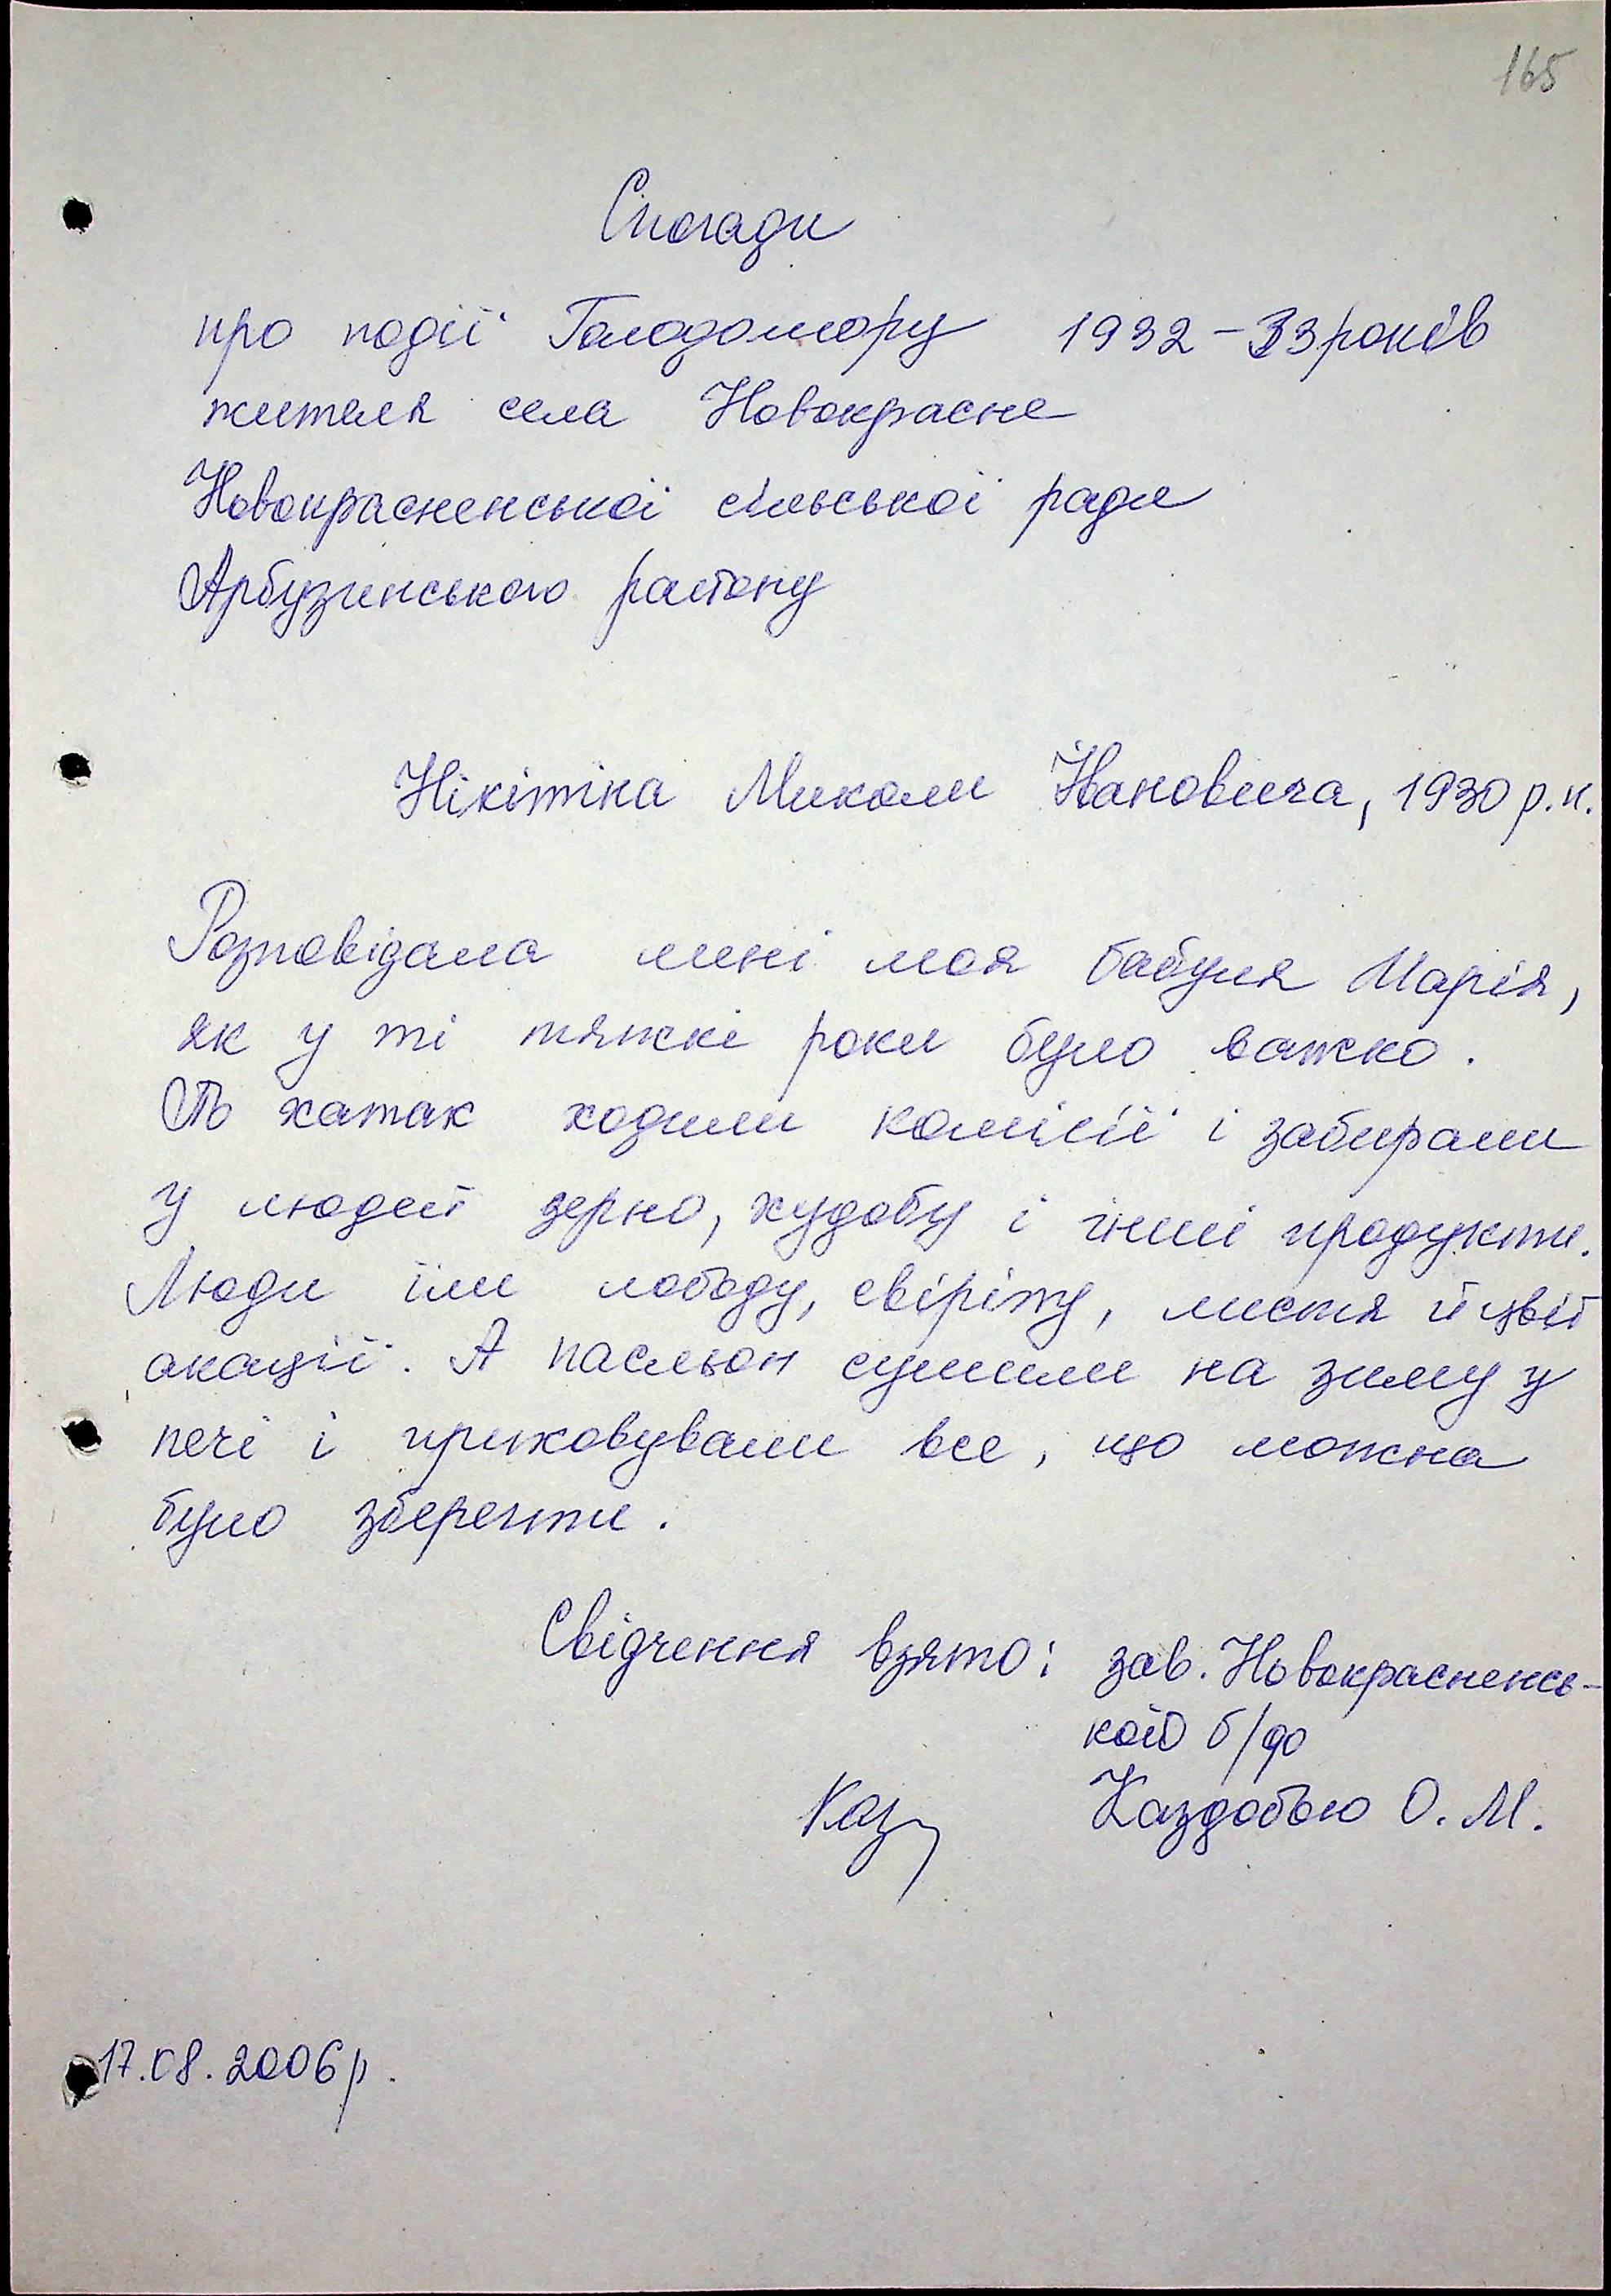 165
Спогади
про події Голодомору 1932-33 років
жителя села Новокрасне
Новокрасненської сільської ради
Арбузинського району
Нікітіна Миколи Йвановича, 1930 р.н.
Розповідала мині моя бабуля Марія,
як у ті тяжкі роки було важко.
По хатах ходили комісії і забирали
у людей зерно, худобу і інші продукти.
Люди їли лободу, свіріпу, листя й цвіт
акації. А пасльон сушили на зиму у
печі і приховували все, що можна
було зберегти.
Свідчення взято: зав. Новокрасненсь-
кого б/ф
Каз Каздобою О.М.
17.08.2006р.